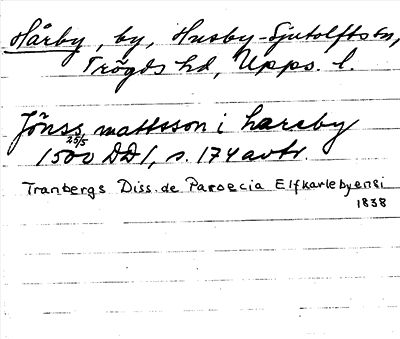 Hårby, by, Husby-Sjutolfts sn,
Trögds hd, Upps. l.
Jönss mattsson i hareby
25/5
1500 DD 1, s. 174 avtr.
Tranbergs Diss. de Paroecia Elfkarlebyensi
1838